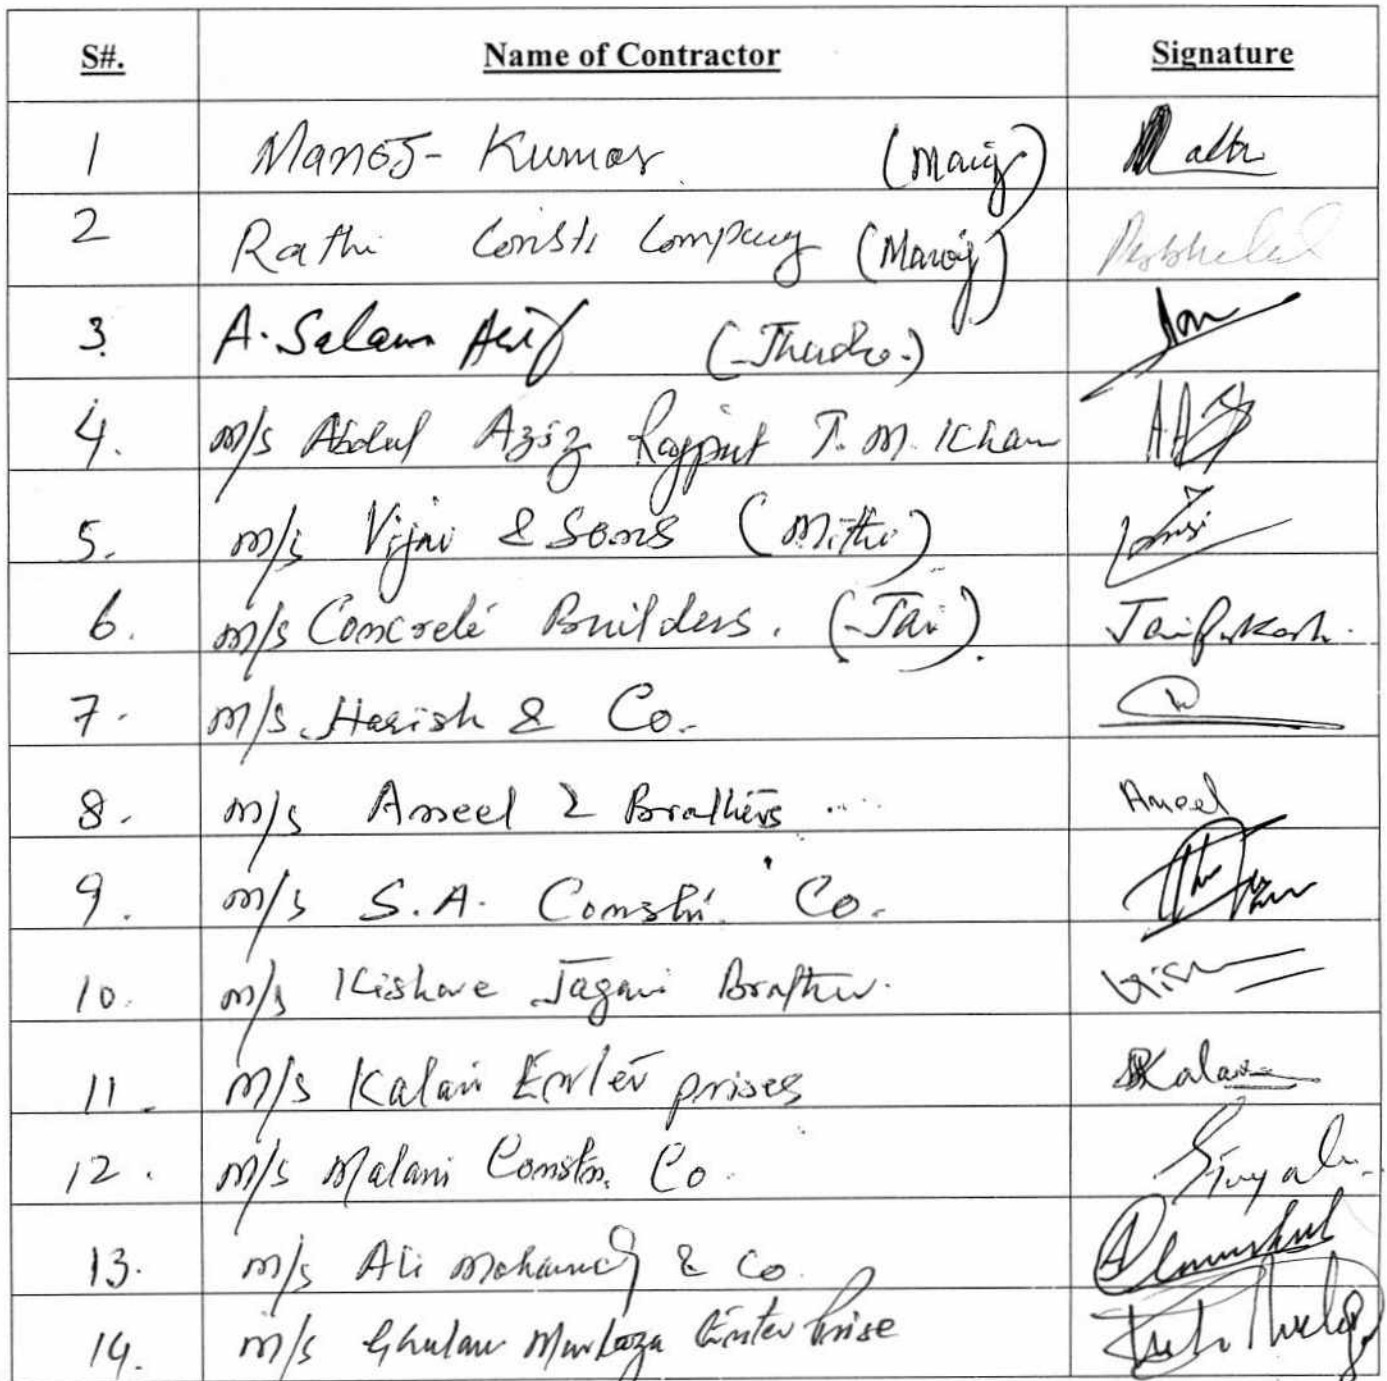 S#. Name of Contractor Signature
1 Manoj- Kumar (Manoj)
2 Rathi Consti Company (Manoj)
3. A. Salam Arif (Jhudo.)
4. m/s Abdul Aziz Rajput T.M. Khan
5. m/s Vijai & Sons (Mithi)
6. m/s Concrete Builders. (Jai). Jaiparkash.
7. m/s. Harish & Co.
8. m/s Aneel & Brothers Aneel
9. m/s S.A. Constn. Co.
10. m/s Kishore Jagani Brother.
11. m/s Kalani Enterprises Kalani
12. m/s Malani Constn. Co.
13. m/s Ali Mohamad & Co.
14. m/s Ghulam Murtaza Enterprise